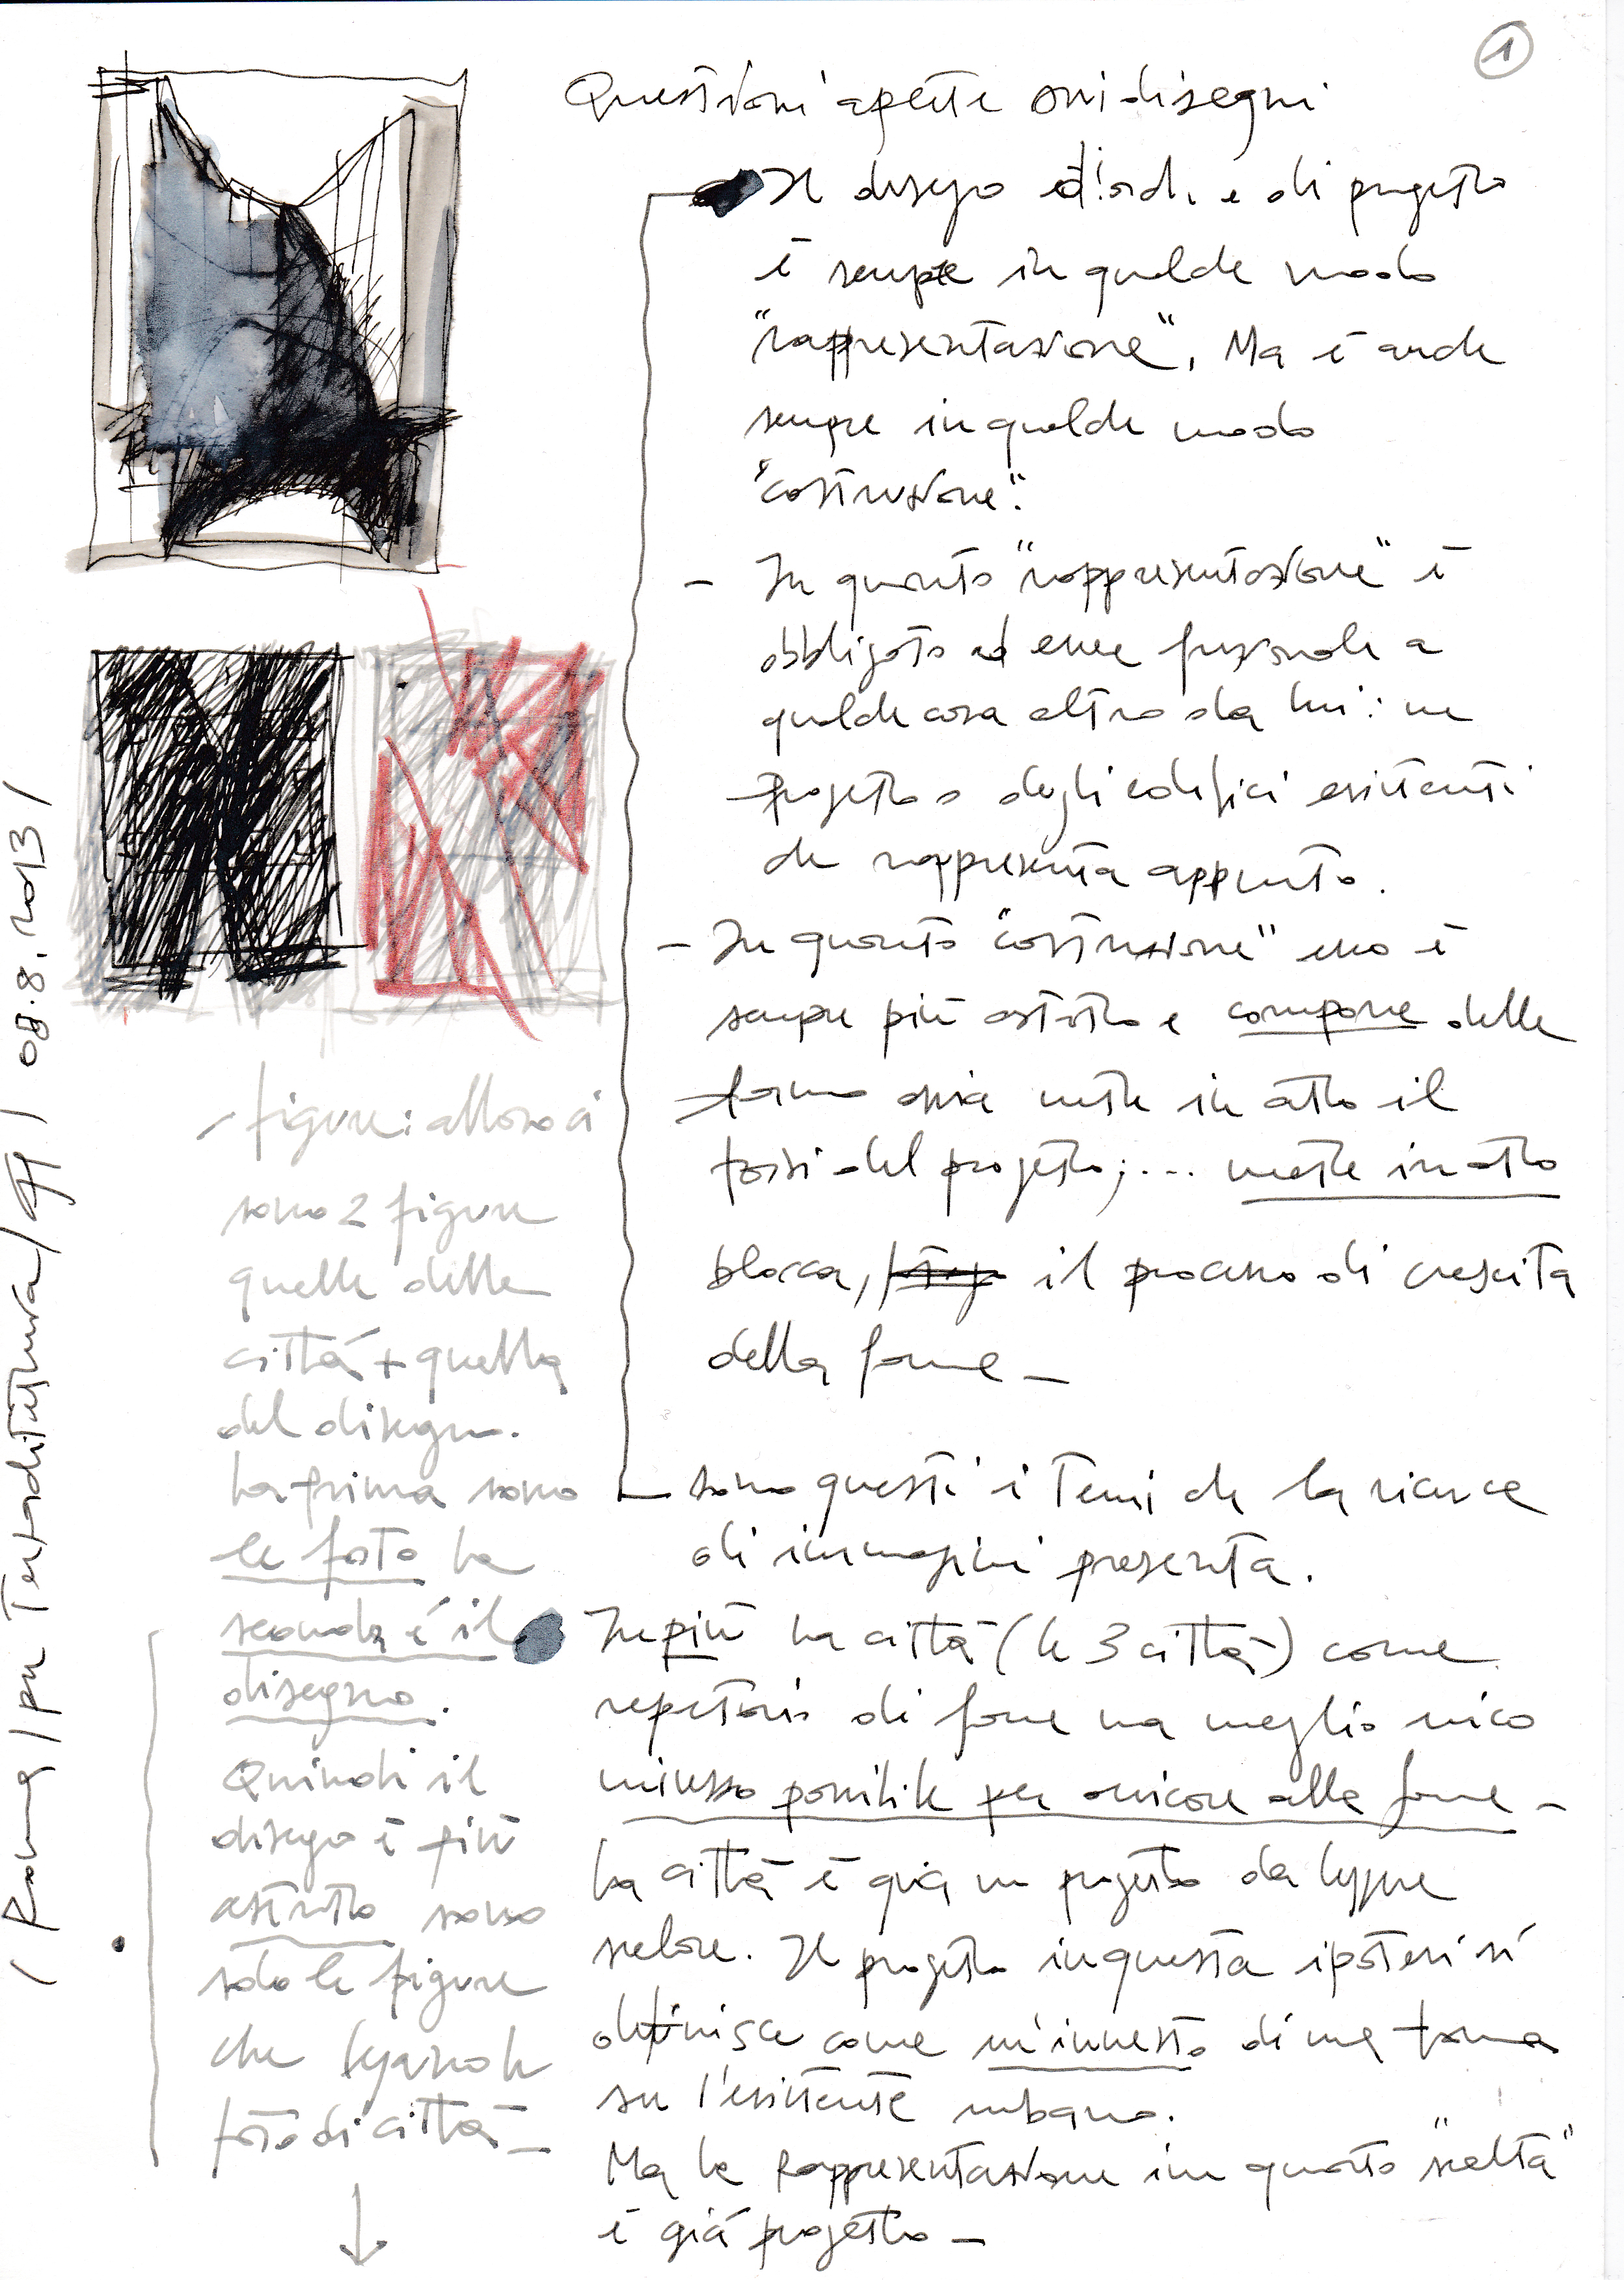 1
Questioni aperte sui disegni
Il disegno di arch. e di progetto
è sempre in qualche modo
"rappresentazione". Ma è anche
sempre in qualche modo
"costruzione".
- In quanto "rappresentazione" è
obbligato ad essere funzionale a
qualche cosa altro da lui: un
progetto o degli edifici esistenti
che rappresenta appunto.
- In quanto "costruzione" esso è
sempre più astratto e compone delle
forme ossia mette in atto il
del progetto; ... mette in atto
blocca, il processo di crescita
della forma -
sono questi i temi che la ricerca
di immagini presenta.
In più la città (le 3 città) come
repertorio di forme ma meglio unico
innesso possibile per alle forme -
La città è già un progetto da leggere
. Il progetto in questa ipotesi si
definisce come un'innesto di una forma
su l'esistente urbano.
Ma la Rappresentazione in quanto "scelta"
è già progetto -
figure: allora ci
sono 2 figure
quelle delle
città + quella
del disegno.
La prima sono
le foto la
seconda è il
disegno.
Quindi il
disegno è più
astratto sono
solo le figure
che legano le
foto di città -
/ Roma / per / 08.8.2013 /